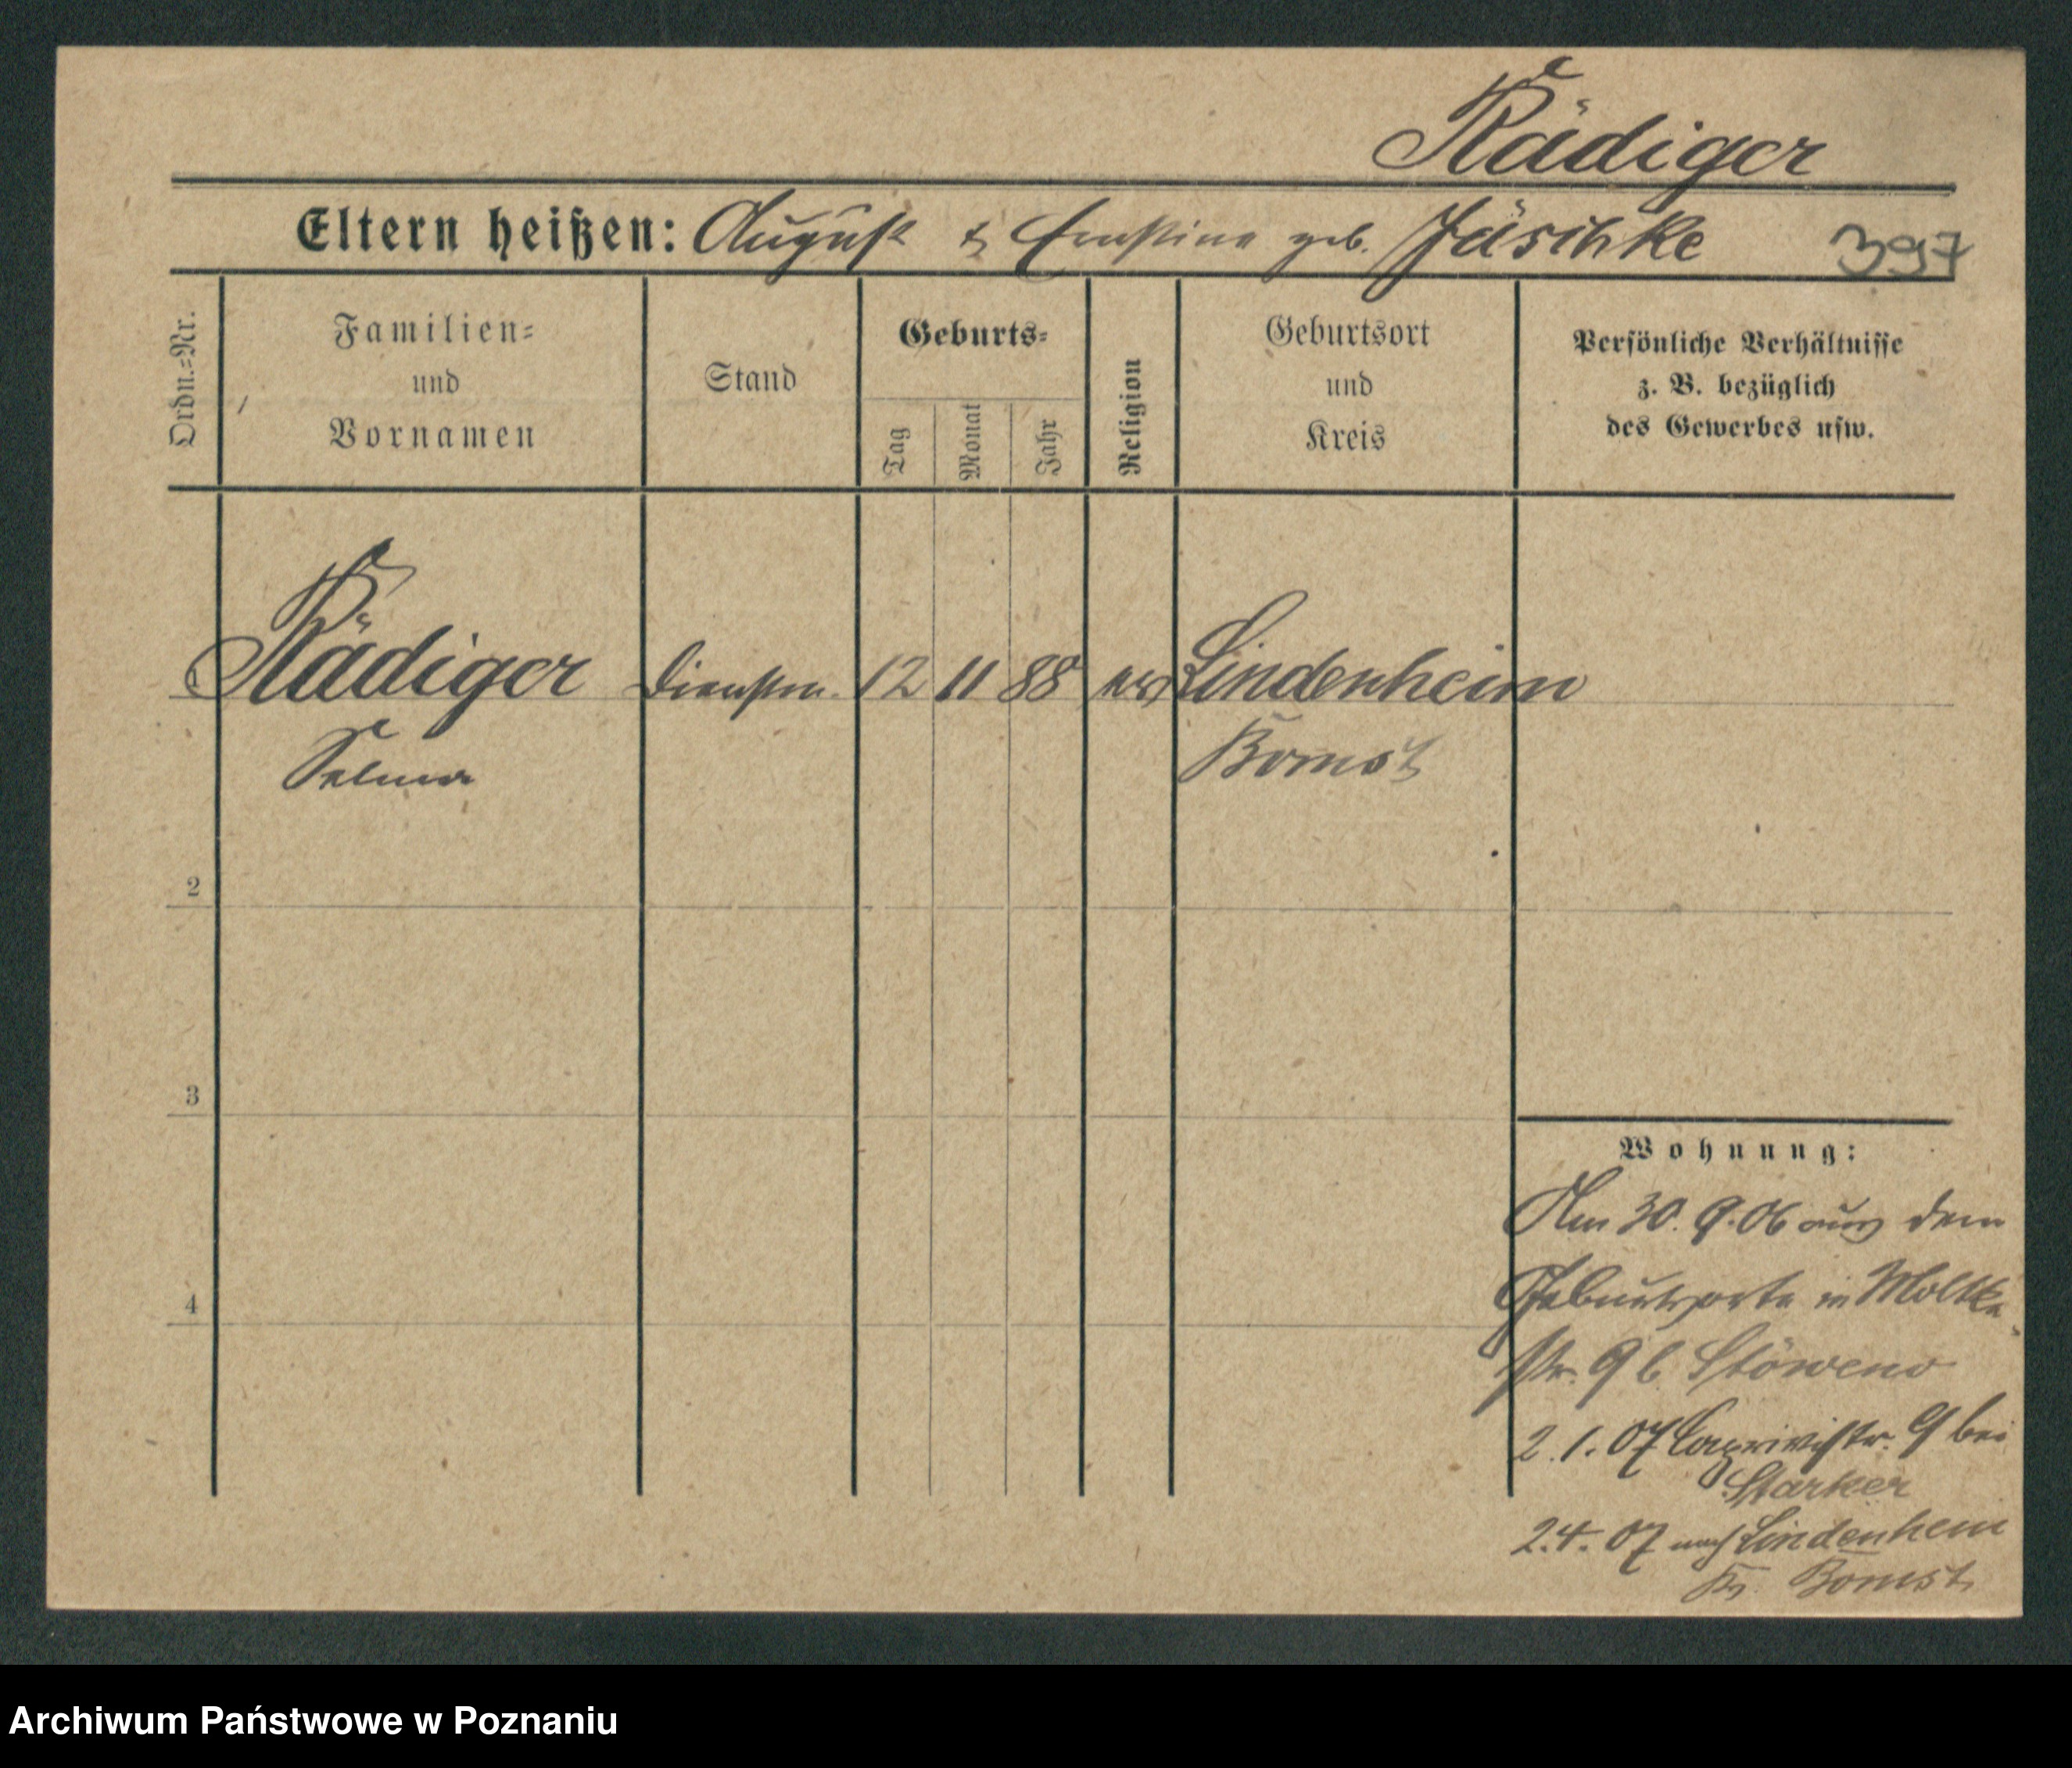 Rädiger
Eltern heißen: August & Ernstine geb. Jäschke 397
Ordn.=Nr.
Familien=
und
Vornamen
Stand
Geburts=
Tag
Monat
Jahr
Religion
Geburtsort
und
Kreis
Persönliche Verhältnisse
z. B. bezüglich
des Gewerbes usw.
1 Rädiger Dienstm. 12 11 88 ev Lindenheim
Selma Bomst
2
3
4
Wohnung:
Am 30.9.06 aus dem
Geburtsorte in Moltke
str. 9 b Stöwens
2.1.07 Caprivistr. 9 bei
Starker
2.4.07 nach Lindenheim
Kr. Bomst
Archiwum Państwowe w Poznaniu